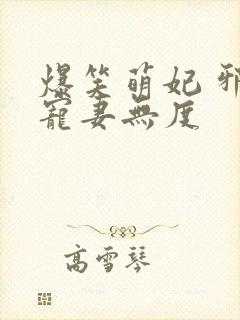 爆笑萌妃 邪
寵妻無度
高雪琴